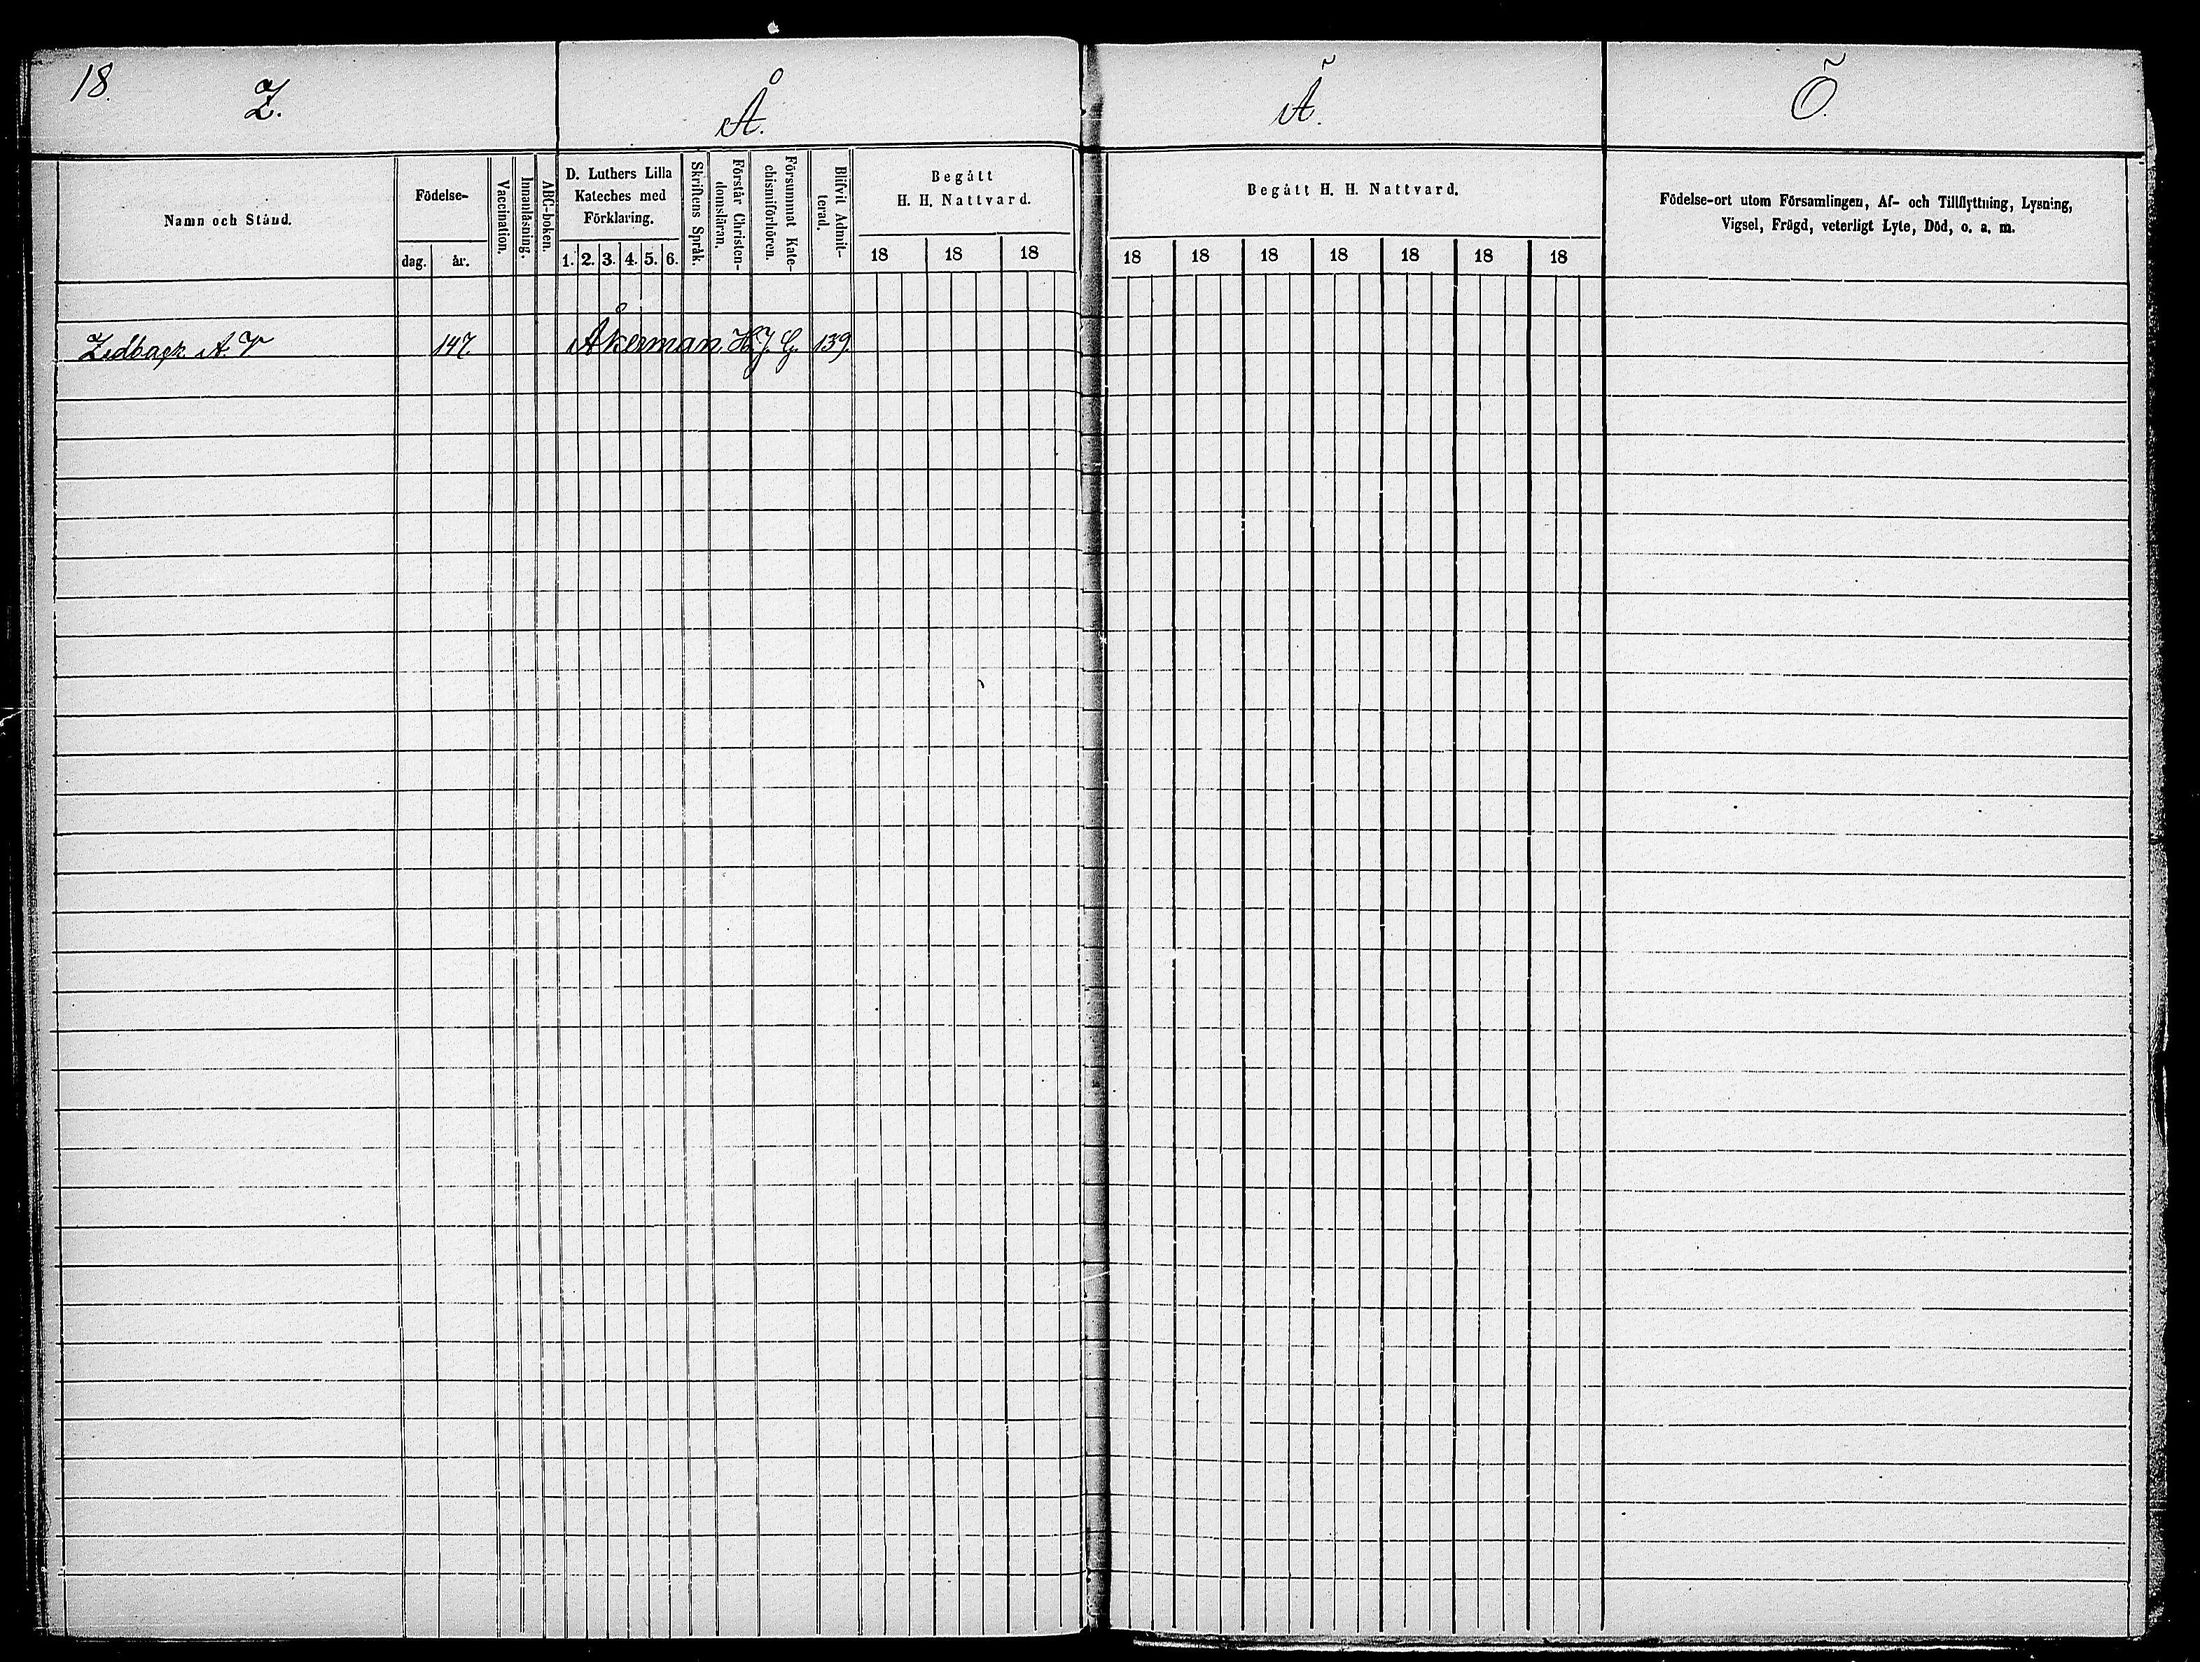 18.
Z.
Å.
Ä.
Ö.
Namn och Stånd.
Födelse-
dag. år.
Vaccination.
Innanläsning.
ABC-boken.
D. Luthers Lilla
Kateches med
Förklaring.
1. 2. 3. 4. 5. 6.
Skriftens Språk.
Förstår Christen-
domsläran.
Försummat Kate-
chismiförhören.
Blifvit Admit-
terad.
Begått
H. H. Nattvard.
18 18 18
Begått H. H. Nattvard.
18 18 18 18 18 18 18
Födelse-ort utom Församlingen, Af- och Tillflyttning, Lysning,
Vigsel, Frägd, veterligt Lyte, Död, o. a. m.
Zedbagk A. V 147.
Åkerman. H. J. G. 139.